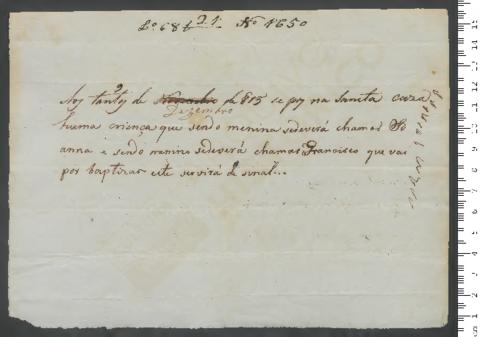 Lo. 68 f 21. No 1650
Aos tantos de Novembro de 815 se poz na Santa Caza
Dezembro
huma criança que sendo menina sedeverá chamar Jo
anna e sendo menino sedeverá chamar Francisco que vai
por baptizar este servirá de sinal...